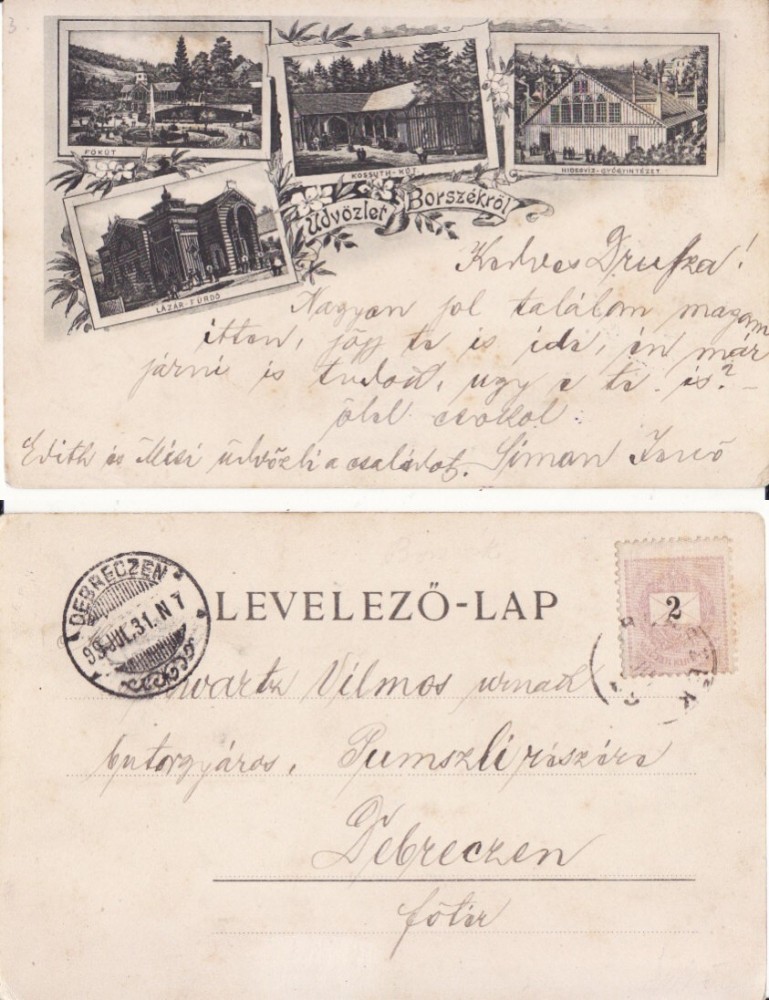 3
FŐKÚT
KOSSUTH-KÚT
HIDEGVIZ-GYÓGYINTÉZET
LÁZÁR-FÜRDŐ
Üdvözlet Borszékről
Kedves Drufza!
Nagyon jol találom magam
itten, jőjj te is ide, én már
járni is tudok, ugy e te is?
ölel csokol
Edith és Misi üdvözli a családot. Simon Jenő
DEBRECZEN
99 JUL. 31. N 7
LEVELEZŐ-LAP
2
Vilmos urnak
butorgyáros, Pumszli részére
Debreczen
főtér